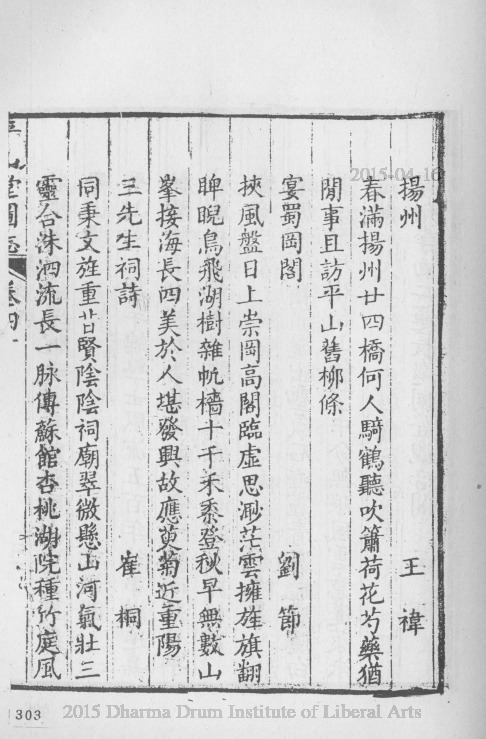 揚州　王褘
春滿揚州廿四橋何人騎鶴聽吹簫荷花芍藥猶
閒事且訪平山舊柳條
宴蜀岡閣　劉節
挾風盤日上崇岡高閣臨虛思渺茫雲擁旌旗翻
睥睨鳥飛湖樹雜帆檣十千禾黍登秋早無數山
峯接海長四美於人堪發興故應萸菊近重陽
三先生祠詩　崔桐
同秉文旌重昔賢陰陰祠廟翠微懸山河氣壯三
靈合洙泗流長一脉傳蘇館杏桃湖院種竹庭風
平山堂圖志　卷四
303
2015-04-16
2015 Dharma Drum Institute of Liberal Arts